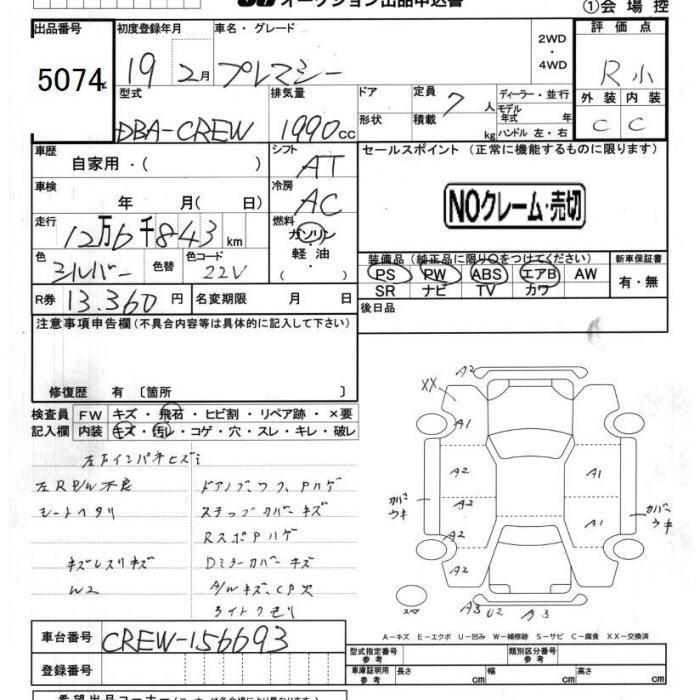 オークション出品申込書
①会場控
出品番号 初度登録年月 車名・グレード 評価点
5074 19 2月 プレマシー 2WD ・ 4WD R 小
型式 排気量 ドア 定員 7 人 ディーラー・並行 外装 内装
DBA-CREW 1990 cc 形状 積載 kg モデル年式 年 ハンドル 左・右 C C
車歴 自家用・( ) シフト AT セールスポイント (正常に機能するものに限ります)
車検 年 月( 日) 冷房 AC NOクレーム・売切
走行 12万6千843 km 燃料 ガソリン・軽油・( )
色 シルバー 色替 色コード 22V 装備品 (純正品に限り○をつけてください) 新車保証書
PS PW ABS エアB AW 有・無
R券 13.360 円 名変期限 月 日 SR ナビ TV カワ
注意事項申告欄 (不具合内容等は具体的に記入して下さい) 後日品
修復歴 有 〔箇所 〕
検査員 FW キズ・飛石・ヒビ割・リペア跡・×要
記入欄 内装 キズ・汚レ・コゲ・穴・スレ・キレ・破レ
左R P/W不良 ドアノブ、ワク、Pハゲ
シートヘタリ ステップカバーキズ
RスポPハゲ
キズレスリキズ Dミラーカバーキズ
W2 A/Wキズ、CP欠
ライトクモリ
A2
XX A1
A2 A1
カバーウキ A2 A1 カバーウキ
A2
A2
スペア A3 U2 A3
A-キズ E-エクボ U-凹み W-補修跡 S-サビ C-腐食 XX-交換済
車台番号 CREW-156693
型式指定番号 参考 類別区分番号 参考
登録番号 車庫証明用 参考 長さ cm 幅 cm 高さ cm